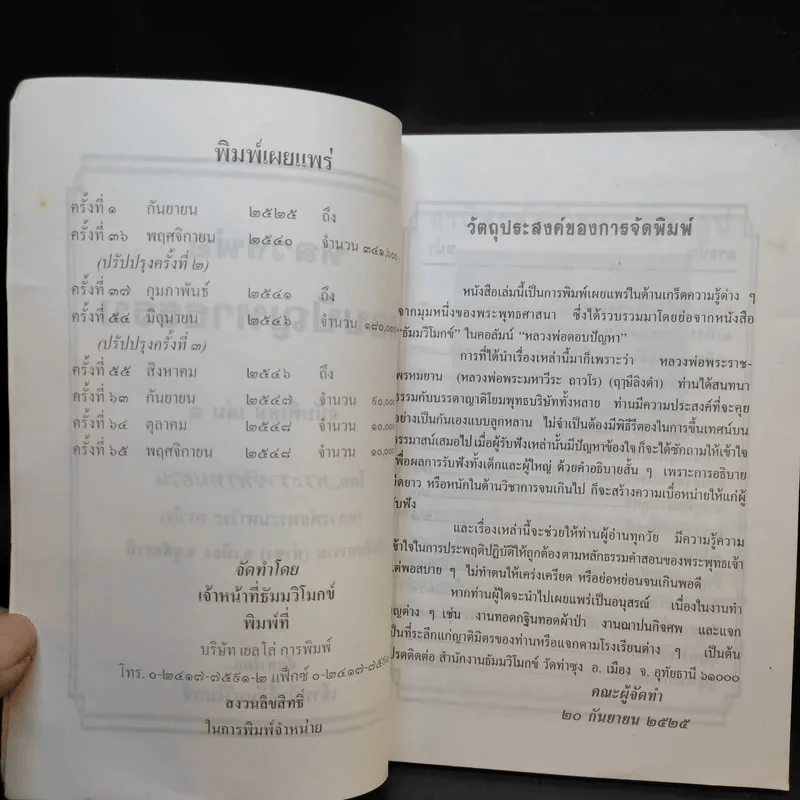 พิมพ์เผยแพร่
ครั้งที่ ๑ กันยายน ๒๕๒๕ ถึง
ครั้งที่ ๓๖ พฤศจิกายน ๒๕๔๐ จำนวน ๓๔๑,๖๐๐
(ปรับปรุงครั้งที่ ๒)
ครั้งที่ ๓๗ กุมภาพันธ์ ๒๕๔๑ ถึง
ครั้งที่ ๕๔ มิถุนายน ๒๕๔๖ จำนวน ๑๘๐,๐๐๐
(ปรับปรุงครั้งที่ ๓)
ครั้งที่ ๕๕ สิงหาคม ๒๕๔๖ ถึง
ครั้งที่ ๖๓ กันยายน ๒๕๔๗ จำนวน ๙๐,๐๐๐
ครั้งที่ ๖๔ ตุลาคม ๒๕๔๘ จำนวน ๑๐,๐๐๐
ครั้งที่ ๖๕ พฤศจิกายน ๒๕๔๘ จำนวน ๑๐,๐๐๐
จัดทำโดย
เจ้าหน้าที่ธัมมวิโมกข์
พิมพ์ที่
บริษัท เยลโล่ การพิมพ์
โทร. ๐-๒๔๑๗-๗๕๙๑-๒ แฟ็กซ์ ๐-๒๔๑๗-๗๕๙๑
สงวนลิขสิทธิ์
ในการพิมพ์จำหน่าย
วัตถุประสงค์ของการจัดพิมพ์
หนังสือเล่มนี้เป็นการพิมพ์เผยแพร่ในด้านเกร็ดความรู้ต่าง ๆ
จากมุมหนึ่งของพระพุทธศาสนา ซึ่งได้รวบรวมมาโดยย่อจากหนังสือ
"ธัมมวิโมกข์" ในคอลัมน์ "หลวงพ่อตอบปัญหา"
การที่ได้นำเรื่องเหล่านี้มาก็เพราะว่า หลวงพ่อพระราช-
พรหมยาน (หลวงพ่อพระมหาวีระ ถาวโร) (ฤๅษีลิงดำ) ท่านได้สนทนา
ธรรมกับบรรดาญาติโยมพุทธบริษัททั้งหลาย ท่านมีความประสงค์ที่จะคุย
อย่างเป็นกันเองแบบลูกหลาน ไม่จำเป็นต้องมีพิธีรีตองในการขึ้นเทศน์บน
ธรรมาสน์เสมอไป เมื่อผู้รับฟังเหล่านั้นมีปัญหาข้องใจ ก็จะได้ซักถามให้เข้าใจ
เพื่อผลการรับฟังทั้งเด็กและผู้ใหญ่ ด้วยคำอธิบายสั้น ๆ เพราะการอธิบาย
ยืดยาว หรือหนักในด้านวิชาการจนเกินไป ก็จะสร้างความเบื่อหน่ายให้แก่ผู้
รับฟัง
และเรื่องเหล่านี้จะช่วยให้ท่านผู้อ่านทุกวัย มีความรู้ความ
เข้าใจในการประพฤติปฏิบัติให้ถูกต้องตามหลักธรรมคำสอนของพระพุทธเจ้า
แต่พอสบาย ๆ ไม่ทำตนให้เคร่งเครียด หรือย่อหย่อนจนเกินพอดี
หากท่านผู้ใดจะนำไปเผยแพร่เป็นอนุสรณ์ เนื่องในงานทำ
บุญต่าง ๆ เช่น งานทอดกฐินทอดผ้าป่า งานฌาปนกิจศพ และแจก
เป็นที่ระลึกแก่ญาติมิตรของท่านหรือแจกตามโรงเรียนต่าง ๆ เป็นต้น
โปรดติดต่อ สำนักงานธัมมวิโมกข์ วัดท่าซุง อ. เมือง จ. อุทัยธานี ๖๑๐๐๐
คณะผู้จัดทำ
๒๐ กันยายน ๒๕๒๕